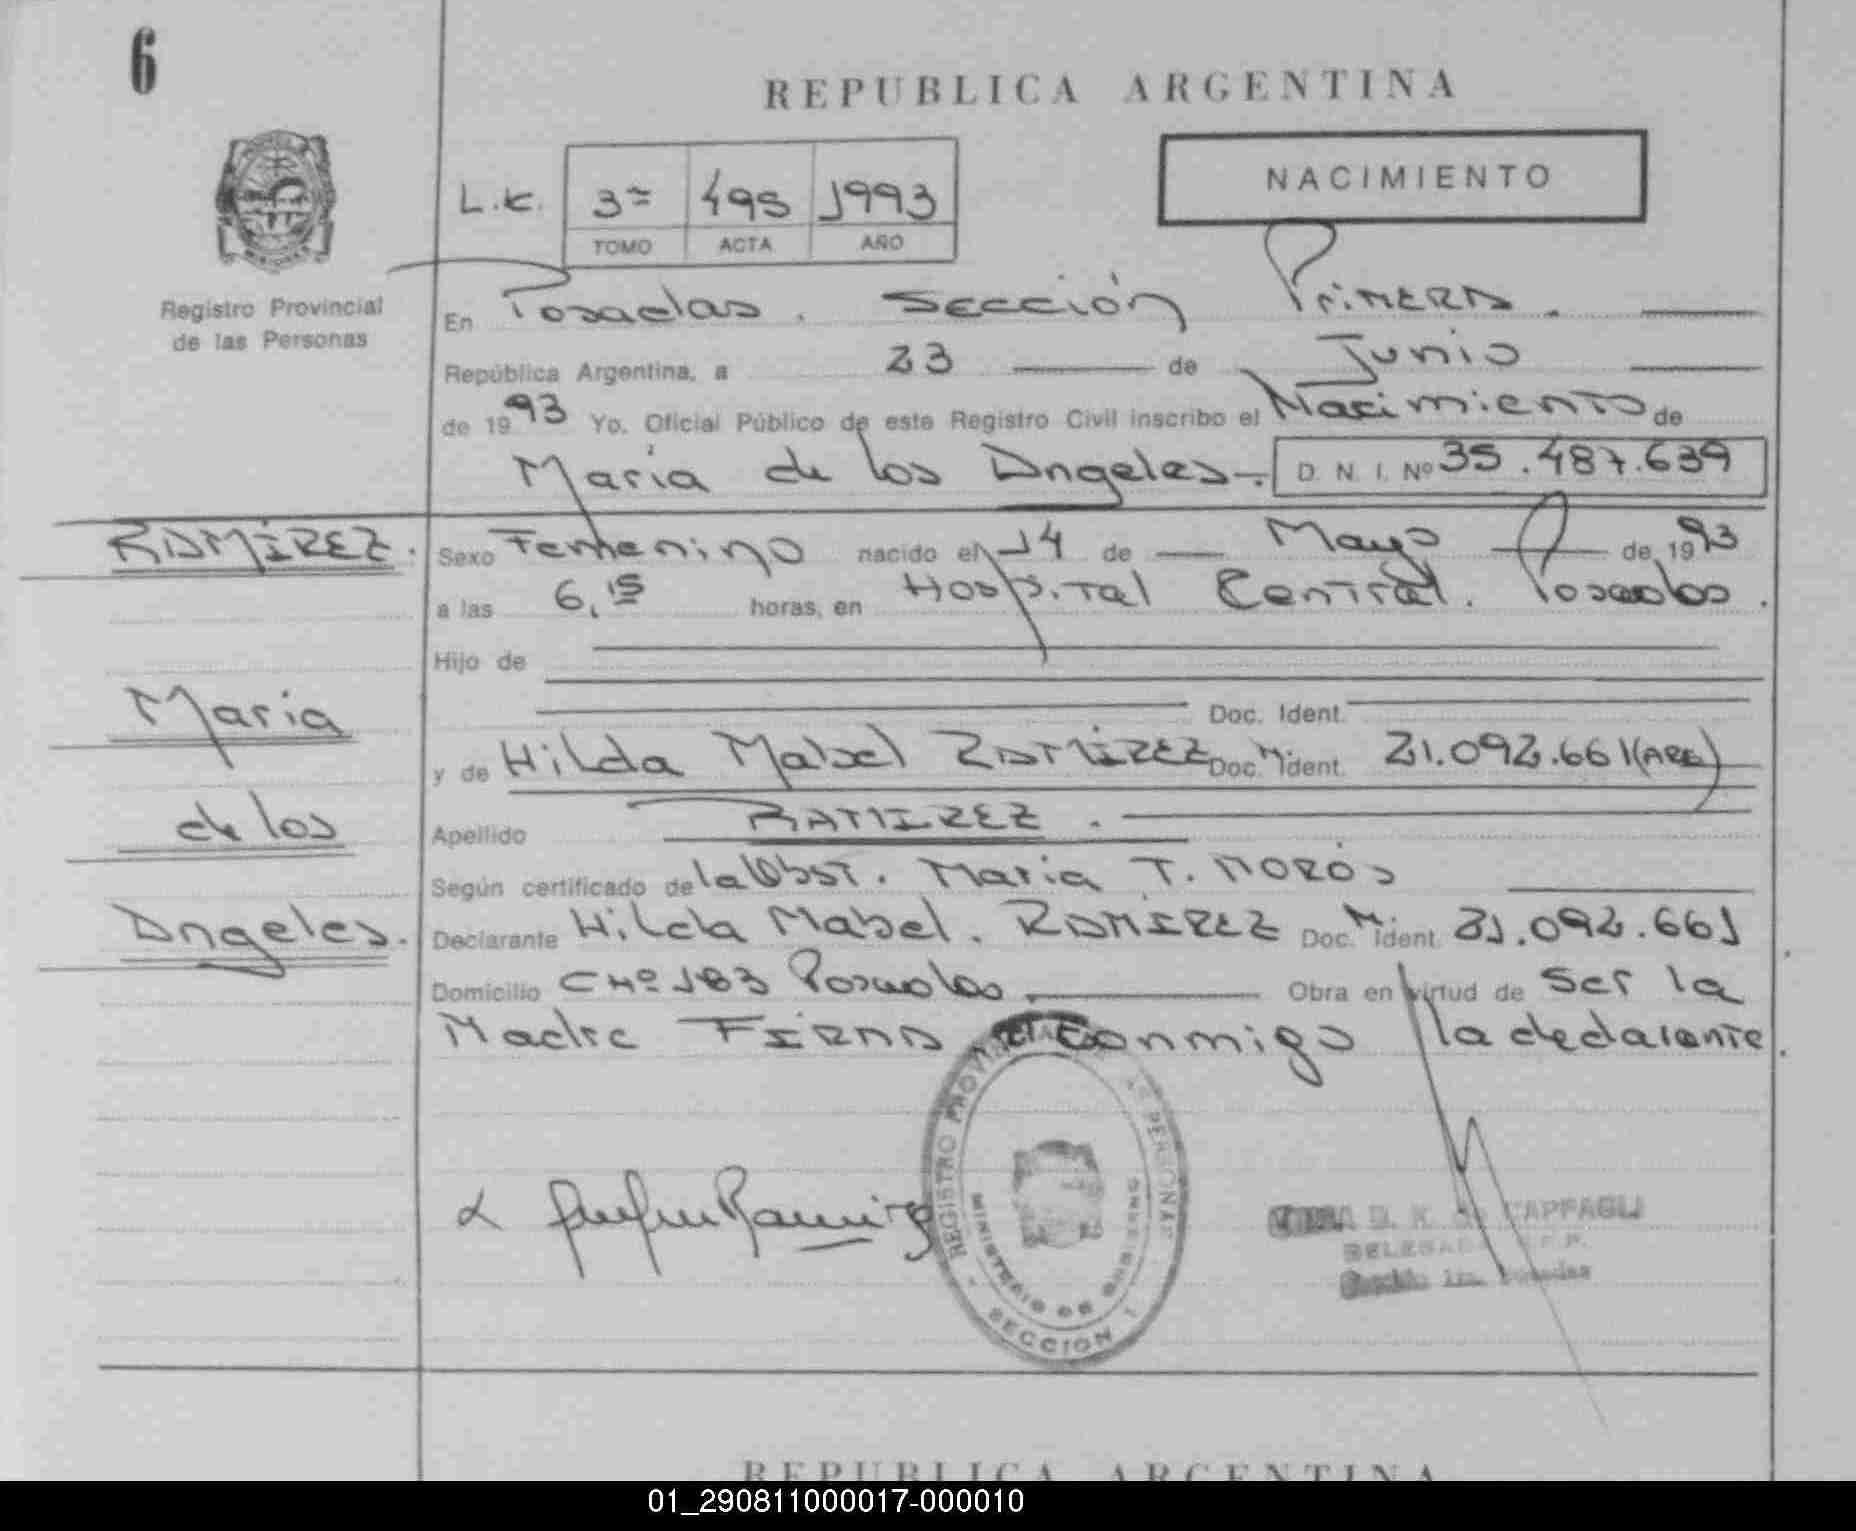 6
REPUBLICA ARGENTINA
NACIMIENTO
L.C. 3ª 495 1993
TOMO ACTA AÑO
Registro Provincial
de las Personas
En Posadas. Sección Primera.
República Argentina, a 23 de Junio
de 1993 Yo, Oficial Público de este Registro Civil inscribo el Nacimiento de
María de los Angeles.- D. N. I. Nº 35.487.639
RAMÍREZ.
Sexo Femenino nacido el 14 de Mayo de 1993
a las 6,15 horas, en Hospital Central. Posadas.
Hijo de
Doc. Ident.
María
y de Hilda Mabel RAMÍREZ Doc. M. Ident. 21.092.661 (ARG)
de los
Apellido RAMIREZ.
Según certificado de la Obst. Maria T.
Angeles.
Declarante Hilda Mabel. RAMÍREZ Doc. M. Ident. 21.092.661
Domicilio CHº 183 Posadas. Obra en virtud de ser la
Madre FIRMA Conmigo la declarante.
Ramirez
REGISTRO PROVINCIAL DE LAS PERSONAS
MINISTERIO DE GOBIERNO
SECCION 1
CAPPAGLI
DELEGADA
1ra. Posadas
REPUBLICA ARGENTINA
01_290811000017-000010